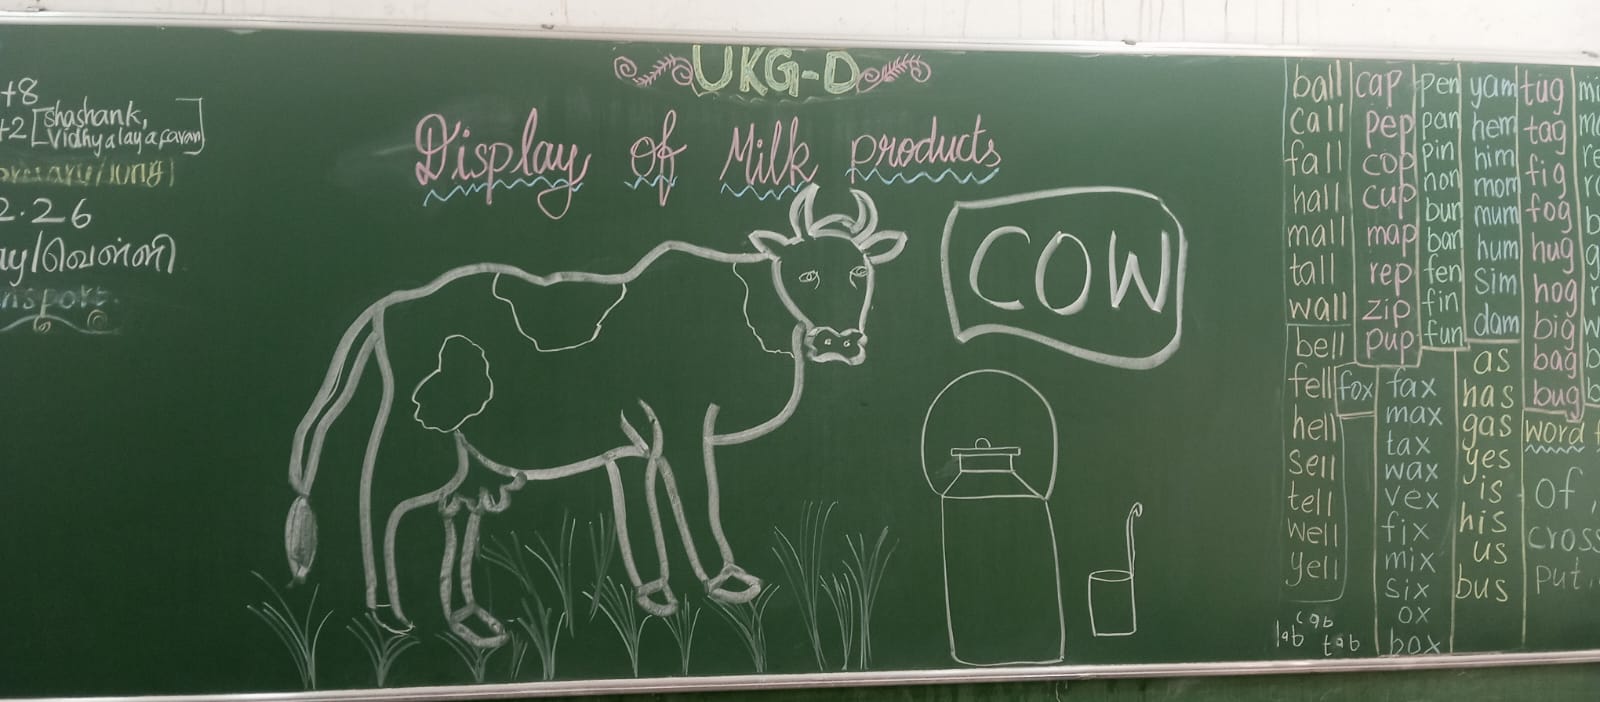 UKG-D
Display of Milk products
COW
+8
+2 [Shashank,
2.26
ay/வெள்ளி
ball
call
fall
hall
mall
tall
wall
bell
fell
hell
sell
tell
well
yell
cap
pep
cop
cup
map
rep
zip
pup
fox
pen
pan
pin
non
bun
ban
fen
fin
fun
fax
max
tax
wax
vex
fix
mix
six
ox
box
yam
hem
him
mom
mum
hum
sim
dam
as
has
gas
yes
is
his
us
bus
tug
tag
fig
fog
hug
hog
big
bag
bug
word
of,
cross
put,
cab
lab tab